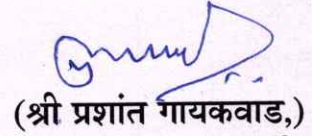 (श्री प्रशांत गायकवाड,)